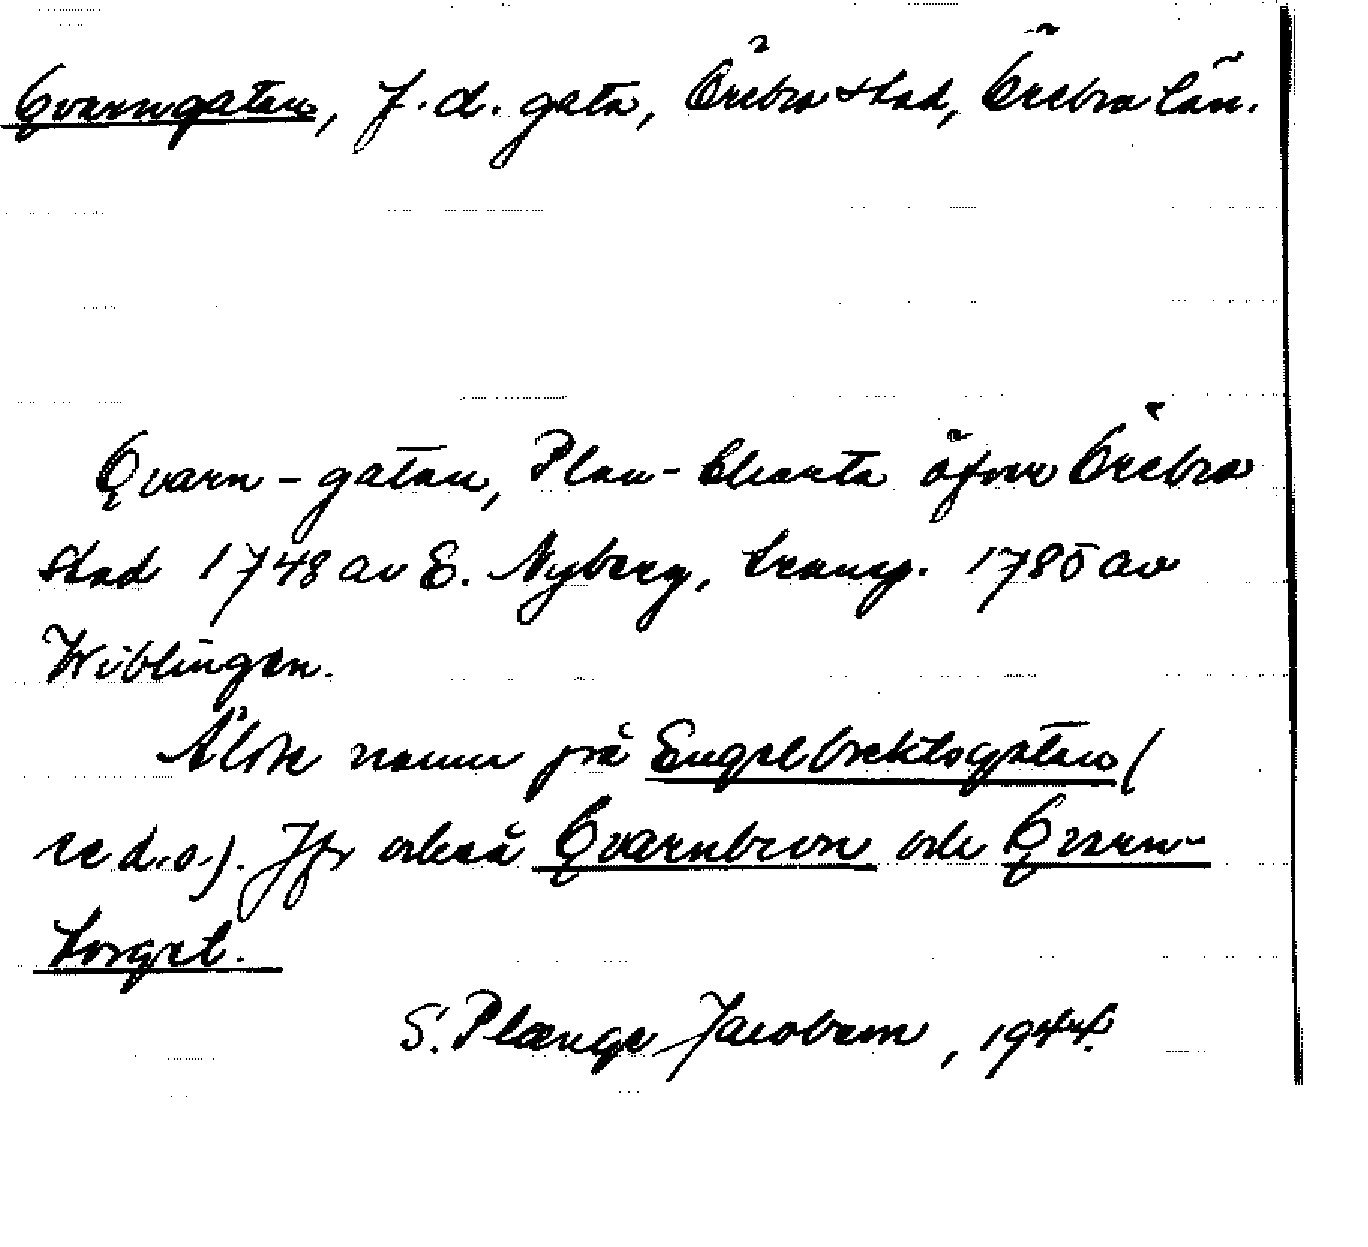 Qvarngatan, f.d. gata, Örebro stad, Örebro län.
Qvarn-gatan, Plan-Charta öfver Örebro
stad 1748 av E. Nyberg, transp. 1785 av
Wiblingen.
Äldre namn på Engelbrektsgatan (
se d.o.). Jfr också Qvarnbron och Qvarn-
torget.
S. Plænge Jacobson, 1944.